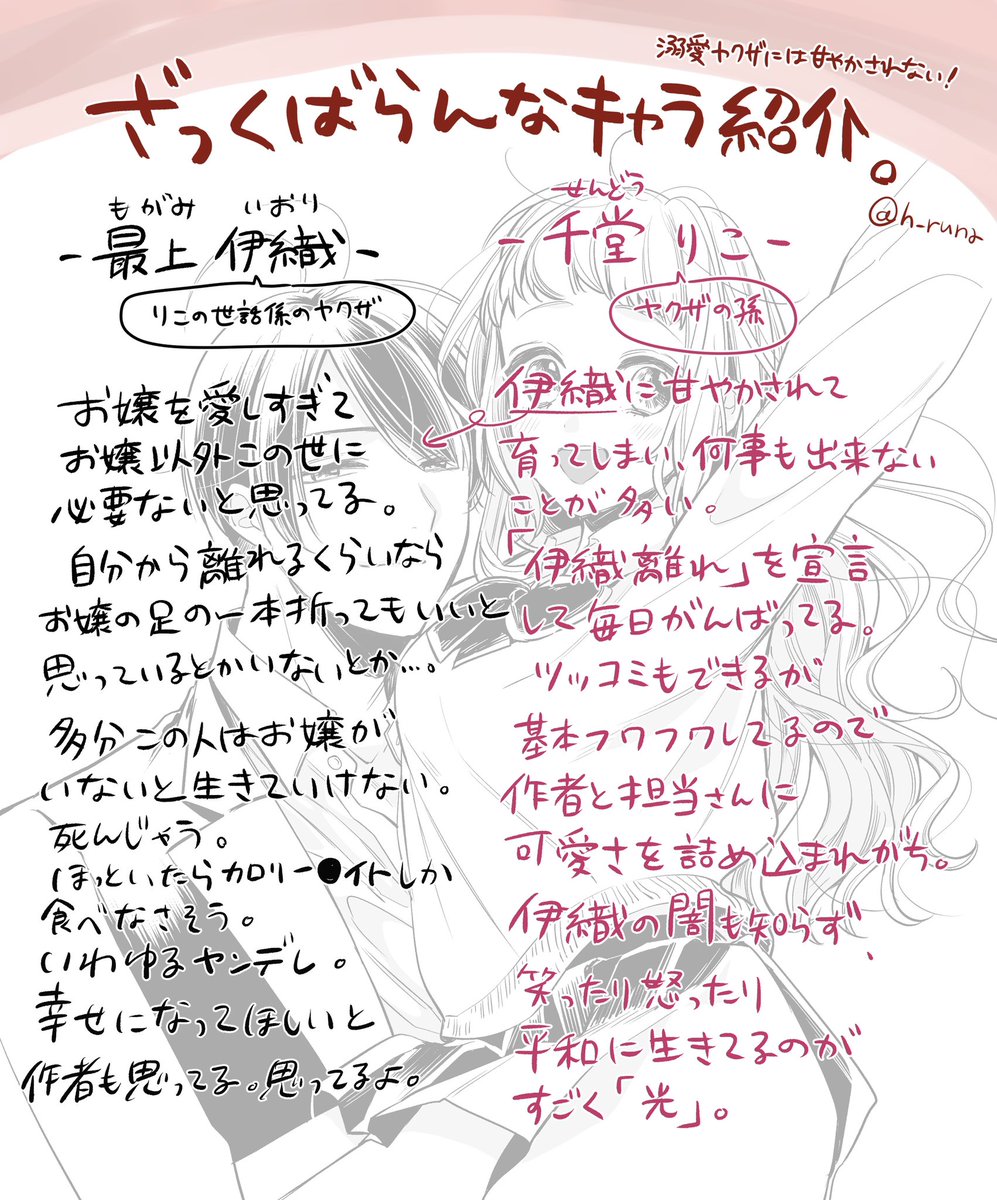 溺愛ヤクザには甘やかされない！
ざっくばらんなキャラ紹介。
@h_runa
もがみ いおり
-最上 伊織-
りこの世話係のヤクザ
お嬢を愛しすぎて
お嬢以外この世に
必要ないと思ってる。
自分から離れるくらいなら
お嬢の足の一本折ってもいいと
思っているとかいないとか…。
多分この人はお嬢が
いないと生きていけない。
死んじゃう。
ほっといたらカロリー●イトしか
食べなさそう。
いわゆるヤンデレ。
幸せになってほしいと
作者も思ってる。思ってるよ。
せんどう
-千堂 りこ-
ヤクザの孫
伊織に甘やかされて
育ってしまい、何事も出来ない
ことが多い。
「伊織離れ」を宣言
して毎日がんばってる。
ツッコミもできるが
基本フワフワしてるので
作者と担当さんに
可愛さを詰め込まれがち。
伊織の闇も知らず、
笑ったり怒ったり
平和に生きてるのが
すごく「光」。